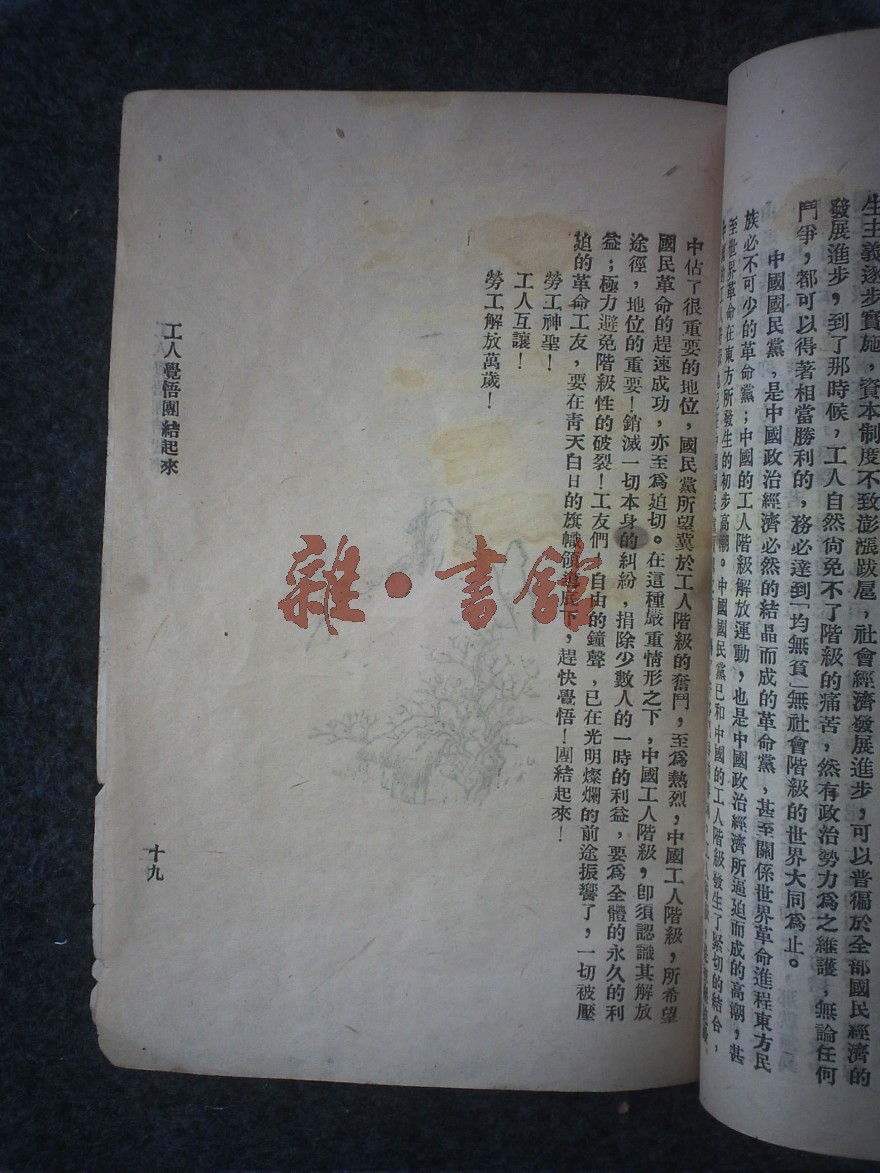 生主義逐步實施，資本制度不致澎漲跋扈，社會經濟發展進步，可以普徧於全部國民經濟的
發展進步，到了那時候，工人自然尙免不了階級的痛苦，然有政治勢力爲之維護，無論任何
鬥爭，都可以得著相當勝利的，務必達到「均無貧」無社會階級的世界大同爲止。
中國國民黨，是中國政治經濟必然的結晶而成的革命黨，甚至關係世界革命進程東方民
族必不可少的革命黨；中國的工人階級解放運動，也是中國政治經濟所逼迫而成的高潮，甚
至世界革命在東方所發生的初步高潮。中國國民黨已和中國的工人階級發生了緊切的結合，
中佔了很重要的地位，國民黨所望冀於工人階級的奮鬥，至爲熱烈，中國工人階級，所希望
國民革命的趕速成功，亦至爲迫切。在這種嚴重情形之下，中國工人階級，卽須認識其解放
途徑，地位的重要！銷滅一切本身的糾紛，捐除少數人的一時的利益，要爲全體的永久的利
益；極力避免階級性的破裂！工友們！自由的鐘聲，已在光明燦爛的前途振響了，一切被壓
迫的革命工友，要在靑天白日的旗幟領導底下，趕快覺悟！團結起來！
勞工神聖！
工人互讓！
勞工解放萬歲！
工人覺悟團結起來
十九
雜·書館